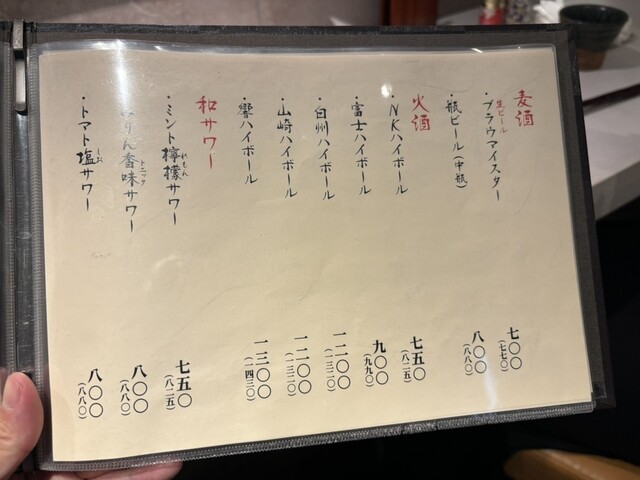 麦酒
・生ビール ブラウマイスター 七〇〇(七七〇)
・瓶ビール(中瓶) 八〇〇(八八〇)
火酒
・NKハイボール 七五〇(八二五)
・富士ハイボール 九〇〇(九九〇)
・白州ハイボール 一二〇〇(一三二〇)
・山崎ハイボール 一二〇〇(一三二〇)
・響ハイボール 一三〇〇(一四三〇)
和サワー
・ミント檸檬サワー 七五〇(八二五)
りん香味サワー 八〇〇(八八〇)
・トマト塩サワー 八〇〇(八八〇)